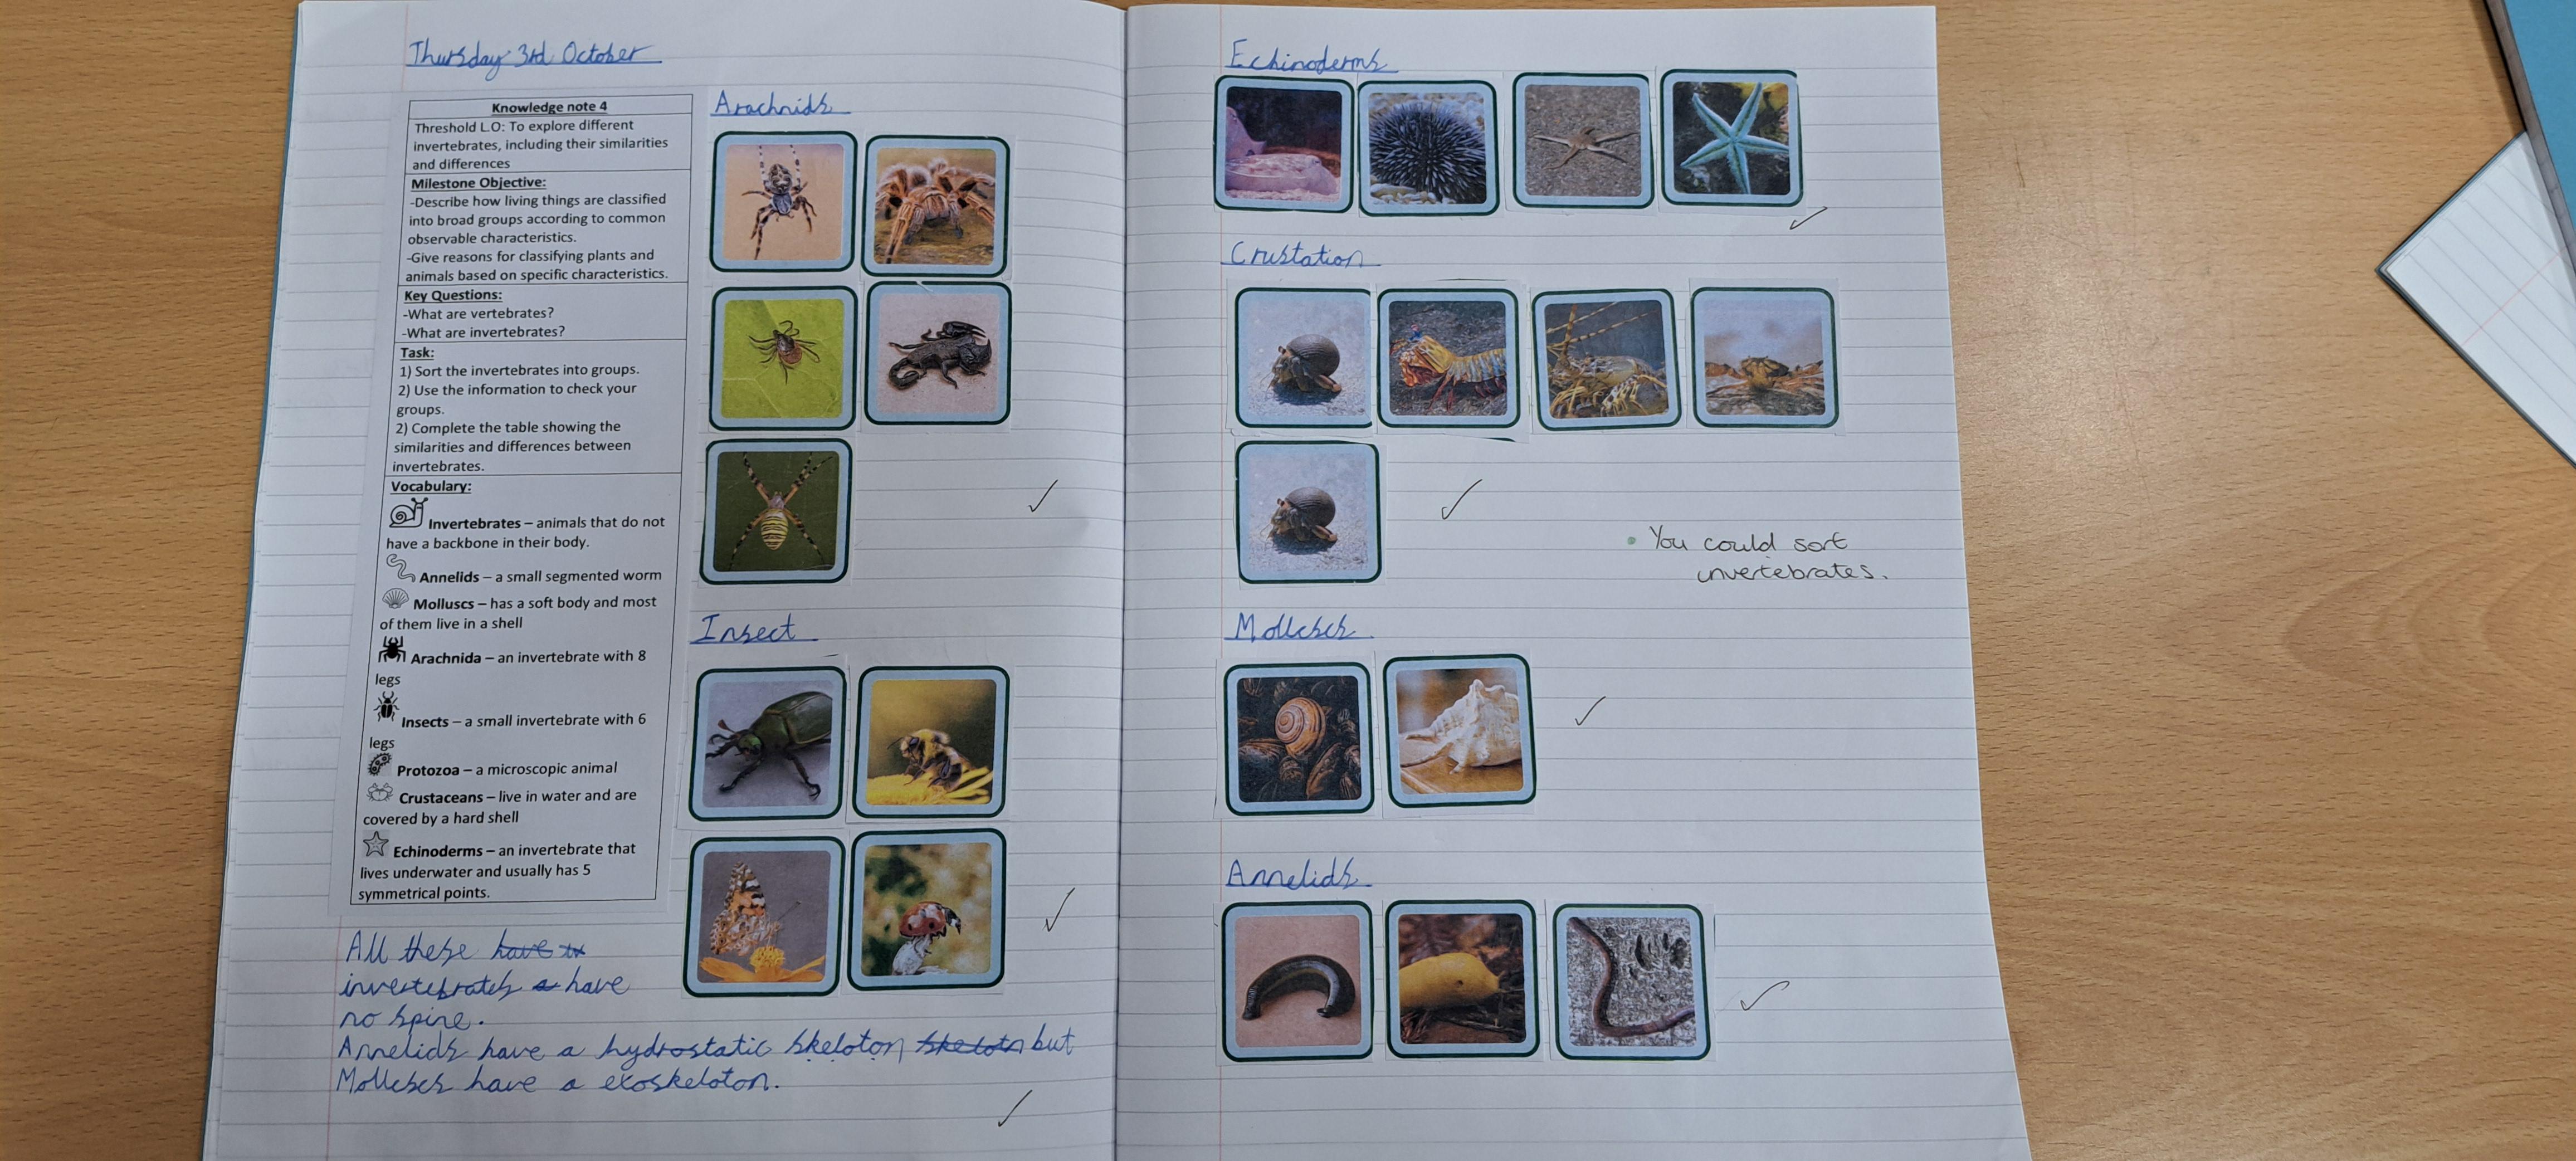 Thursday 3rd October
Knowledge note 4
Threshold L.O: To explore different
invertebrates, including their similarities
and differences
Milestone Objective:
-Describe how living things are classified
into broad groups according to common
observable characteristics.
-Give reasons for classifying plants and
animals based on specific characteristics.
Key Questions:
-What are vertebrates?
-What are invertebrates?
Task:
1) Sort the invertebrates into groups.
2) Use the information to check your
groups.
2) Complete the table showing the
similarities and differences between
invertebrates.
Vocabulary:
Invertebrates – animals that do not
have a backbone in their body.
Annelids – a small segmented worm
Molluscs – has a soft body and most
of them live in a shell
Arachnida – an invertebrate with 8
legs
Insects – a small invertebrate with 6
legs
Protozoa – a microscopic animal
Crustaceans – live in water and are
covered by a hard shell
Echinoderms – an invertebrate that
lives underwater and usually has 5
symmetrical points.
All these have
invertebrates have
no spine.
Annelids have a hydrostatic skeloton skelotn but
Molluscs have a exoskeloton.
Arachnids
Insect
Echinoderms
Crustation
• You could sort
invertebrates.
Molluscs
Annelids